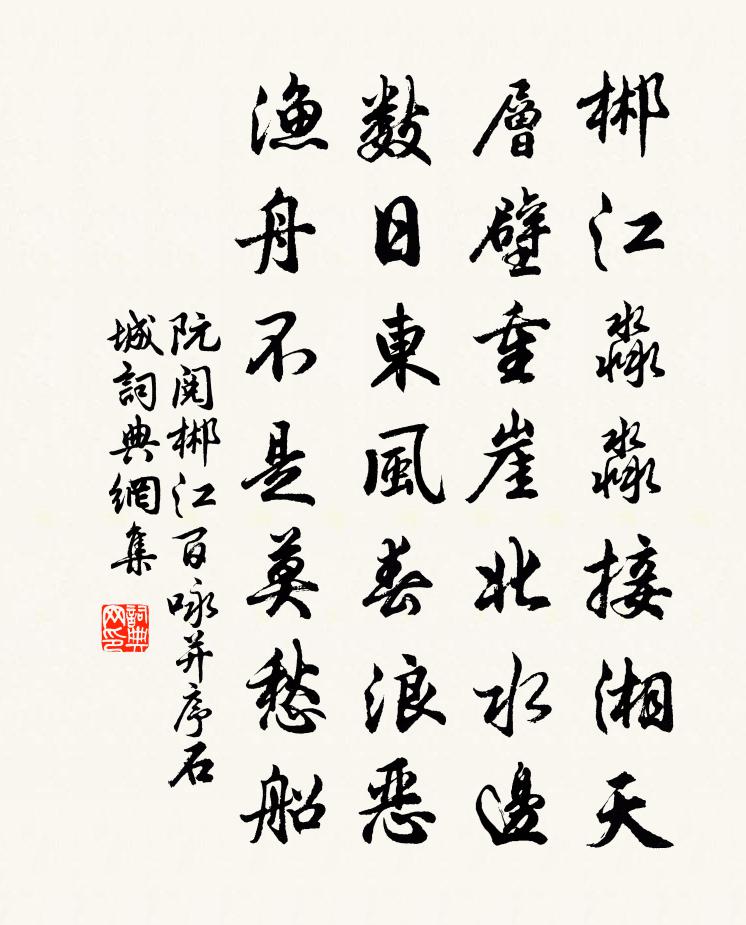 郴江淼淼接湘天
層壁重崖北水邊
數日東風春浪惡
漁舟不是莫愁船
阮閱郴江百咏并序石
城詞典網集
詞典
网印